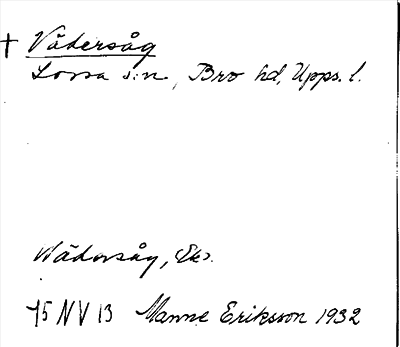 † Vådersåg
Lossa s:n, Bro hd, Upps. l.
Wådersåg, Ek.
75 NV 13 Manne Eriksson 1932